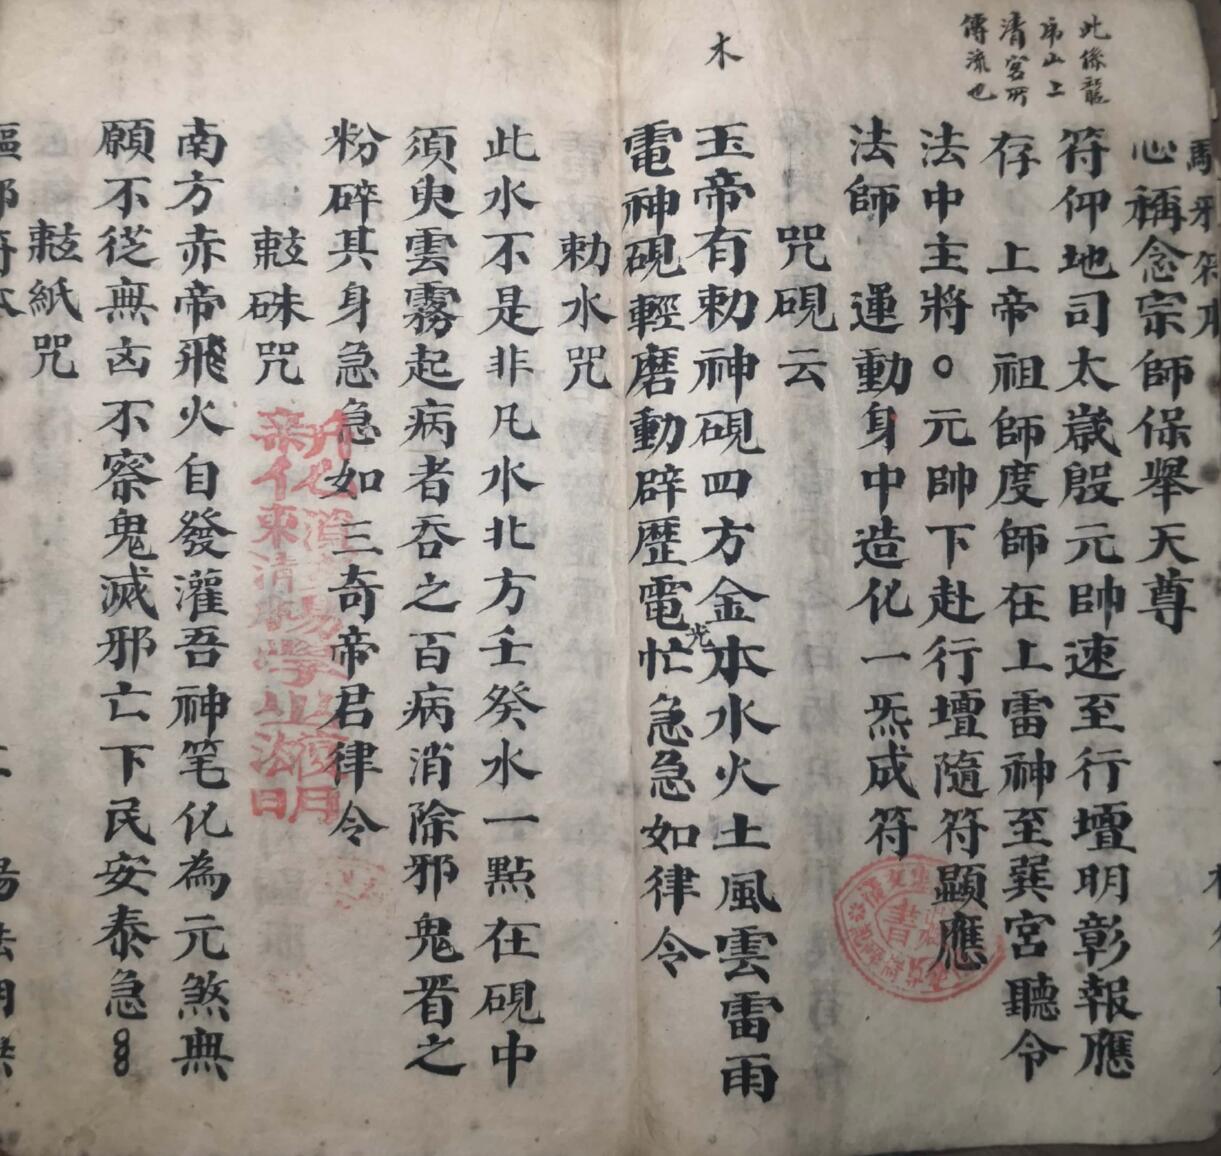 此係龍
虎山上
清宮所
傳流也
心稱念宗師保舉天尊
符仰地司太歲殷元帥速至行壇明彰報應
存 上帝祖師度師在上雷神至巽宮聽令
法中主將○元帥下赴行壇隨符顯應
法師 運動身中造化一炁成符
咒硯云
玉帝有勅神硯四方金木水火土風雲雷雨
木
電神硯輕磨動辟歷電光忙急急如律令
勅水咒
此水不是非凡水北方壬癸水一點在硯中
須臾雲霧起病者吞之百病消除邪鬼㫺之
粉碎其身急急如三奇帝君律令
敕硃咒
南方赤帝飛火自發灌吾神笔化為元煞無
願不從無凶不察鬼滅邪亡下民安泰急
敕紙咒